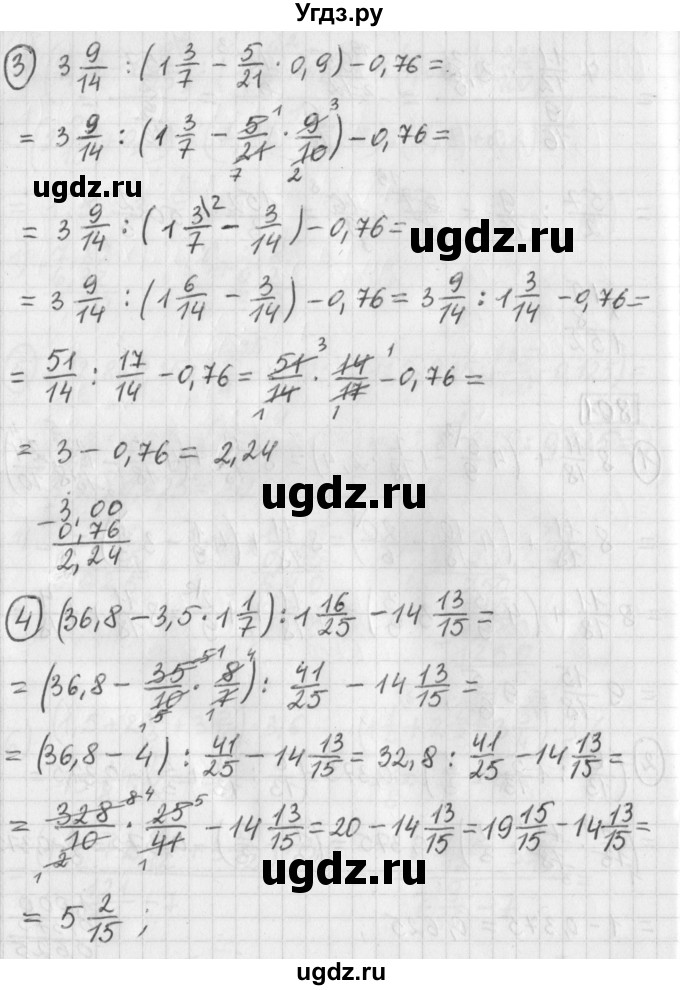 Угдз.ру
3) 3 9/14 : (1 3/7 - 5/21 · 0,9) - 0,76 =
= 3 9/14 : (1 3/7 - 5/21 · 9/10) - 0,76 = 1 3 7 2
ugdz.ru
ugdz.ru
= 3 9/14 : (1 3/7 \2 - 3/14) - 0,76 =
= 3 9/14 : (1 6/14 - 3/14) - 0,76 = 3 9/14 : 1 3/14 - 0,76 =
= 51/14 : 17/14 - 0,76 = 51/14 · 14/17 - 0,76 = 3 1 1 1
= 3 - 0,76 = 2,24
ugdz.ru
- 3,00
0,76
2,24
ugdz.ru
4) (36,8 - 3,5 · 1 1/7) : 1 16/25 - 14 13/15 =
= (36,8 - 35/10 · 8/7) : 41/25 - 14 13/15 = 5 1 4 1 5 1
ugdz.ru
= (36,8 - 4) : 41/25 - 14 13/15 = 32,8 : 41/25 - 14 13/15 =
= 328/10 · 25/41 - 14 13/15 = 20 - 14 13/15 = 19 15/15 - 14 13/15 = 8 4 5 1 2 1
ugdz.ru
= 5 2/15 ;
ugdz.ru
ugdz.ru